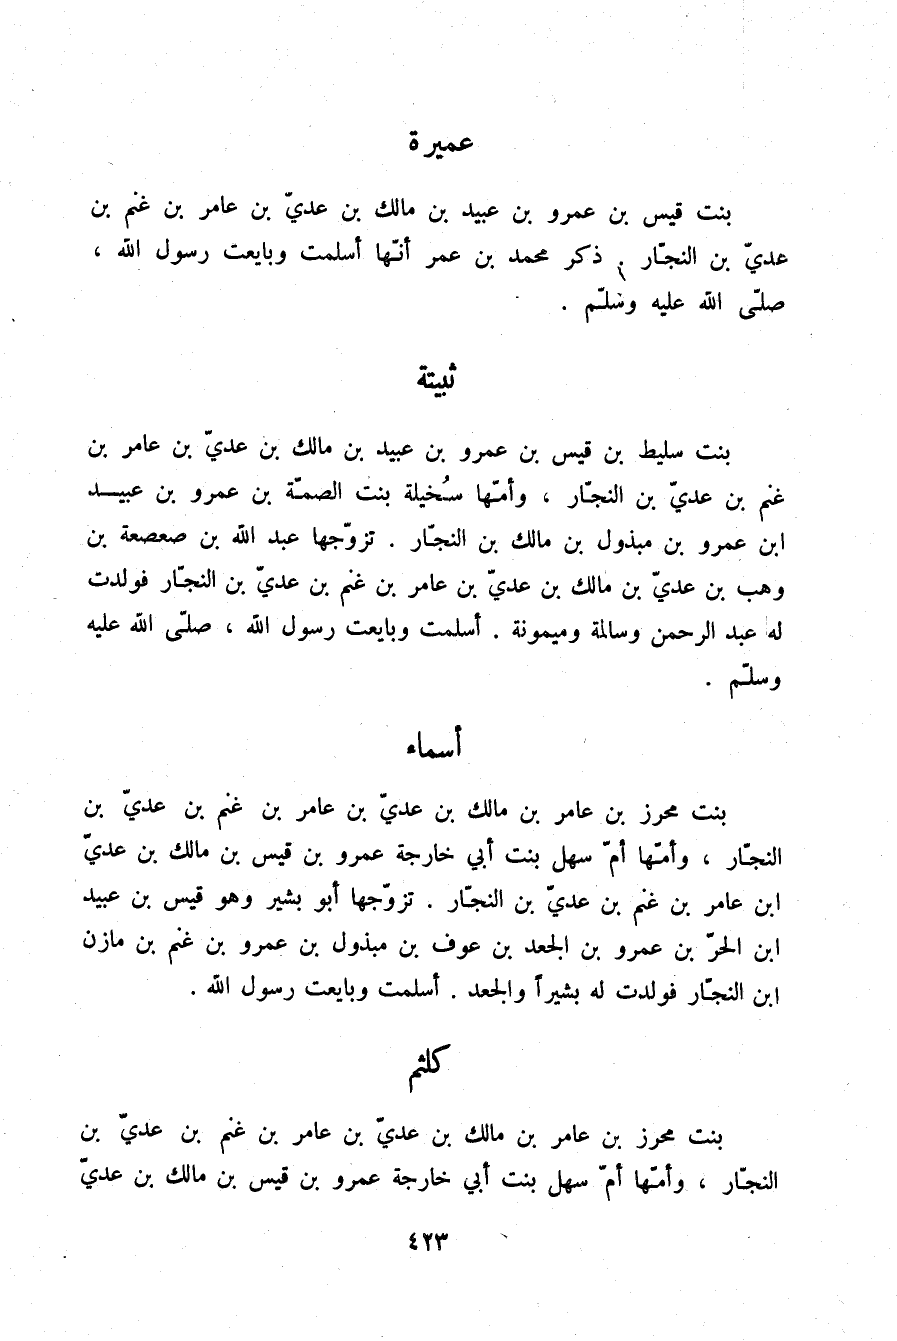 عميرة
بنت قيس بن عمرو بن عبيد بن مالك بن عديّ بن عامر بن غنم بن
عديّ بن النجّار . ذكر محمد بن عمر أنّها أسلمت وبايعت رسول الله ،
صلّى الله عليه وسلّم .
ثبيتة
بنت سليط بن قيس بن عمرو بن عبيد بن مالك بن عديّ بن عامر بن
غنم بن عديّ بن النجّار ، وأمّها سُخيلة بنت الصمّة بن عمرو بن عبيـــد
ابن عمرو بن مبذول بن مالك بن النجّار . تزوّجها عبد الله بن صعصعة بن
وهب بن عديّ بن مالك بن عديّ بن عامر بن غنم بن عديّ بن النجّار فولدت
له عبد الرحمن وسالمة وميمونة . أسلمت وبايعت رسول الله ، صلّى الله عليه
وسلّم .
أسماء
بنت محرز بن عامر بن مالك بن عديّ بن عامر بن غنم بن عديّ بن
النجّار ، وأمّها أمّ سهل بنت أبي خارجة عمرو بن قيس بن مالك بن عديّ
ابن عامر بن غنم بن عديّ بن النجّار . تزوّجها أبو بشير وهو قيس بن عبيد
ابن الحرّ بن عمرو بن الجعد بن عوف بن مبذول بن عمرو بن غنم بن مازن
ابن النجّار فولدت له بشيراً والجعد . أسلمت وبايعت رسول الله .
كلثم
بنت محرز بن عامر بن مالك بن عديّ بن عامر بن غنم بن عديّ بن
النجّار ، وأمّها أمّ سهل بنت أبي خارجة عمرو بن قيس بن مالك بن عديّ
٤٢٣